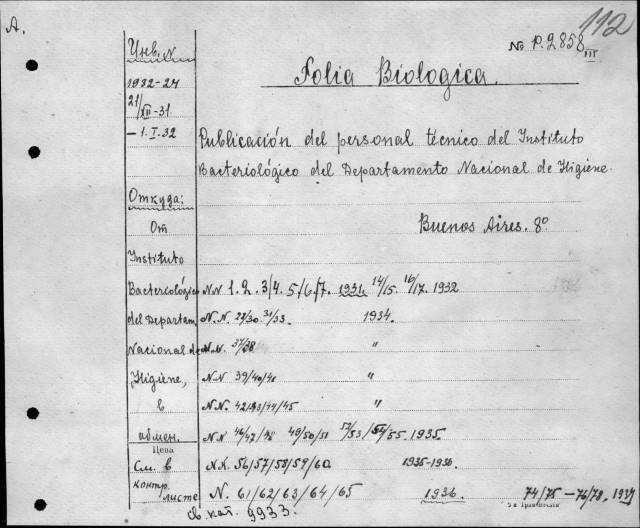 A.
112
№ P.2858 III
Инв. N
Folia Biologica.
1932-24
21/XII-31
– 1.I.32
Publicación del personal técnico del Instituto
Bacteriológico del Departamento Nacional de Higiene.
Откуда:
От
Buenos Aires. 8°
Instituto
Bacteriológico NN 1. 2. 3/4. 5/6/7. 1931. 14/15. 16/17. 1932
del Departam. N.N. 29/30 31/33. 1934.
Nacional de N.N. 37/38 "
Higiene, NN 39/40/41 "
в NN. 42/43/44/45 "
обмен. NN 46/47/48 49/50/51 52/53/54/55. 1935.
Цена
См. в N.N. 56/57/58/59/60 1935-1936.
контр.
листе N. 61/62/63/64/65 1936 74/75 – 76/78. 1937
св. кат. 9933.